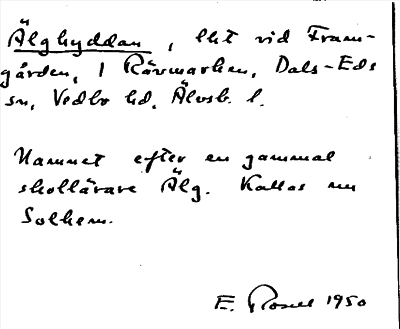 Älghyddan, lht vid Fram-
gården, 1 Rävmarken, Dals-Eds
sn, Vedbo hd, Älvsb. l.
Namnet efter en gammal
skollärare Älg. Kallas nu
Solhem.
E. Rosell 1950